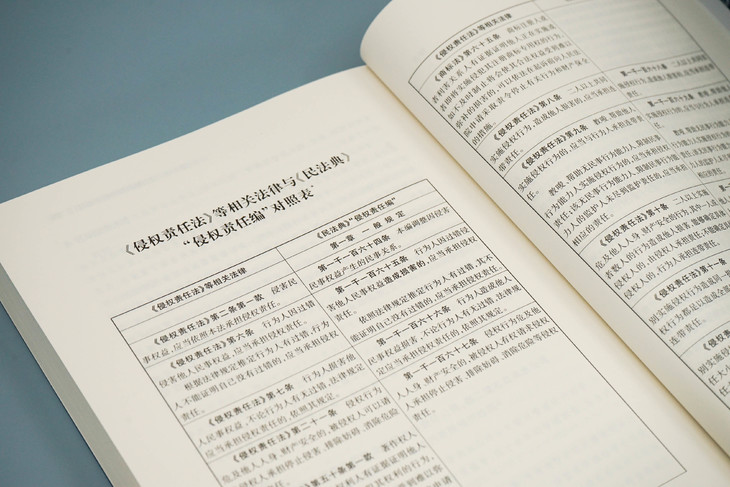 《侵权责任法》等相关法律与《民法典》
“侵权责任编”对照表*
《侵权责任法》等相关法律
《民法典》“侵权责任编”
第一章 一般规定
《侵权责任法》第二条第一款 侵害民
事权益,应当依照本法承担侵权责任。
第一千一百六十四条 本编调整因侵害
民事权益产生的民事关系。
《侵权责任法》第六条 行为人因过错
侵害他人民事权益,应当承担侵权责任。
根据法律规定推定行为人有过错,行为
人不能证明自己没有过错的,应当承担侵权
责任。
第一千一百六十五条 行为人因过错侵
害他人民事权益造成损害的,应当承担侵权
责任。
依照法律规定推定行为人有过错,其不
能证明自己没有过错的,应当承担侵权责任。
《侵权责任法》第七条 行为人损害他
人民事权益,不论行为人有无过错,法律规定
应当承担侵权责任的,依照其规定。
第一千一百六十六条 行为人造成他人
民事权益损害,不论行为人有无过错,法律规
定应当承担侵权责任的,依照其规定。
《侵权责任法》第二十一条 侵权行为
危及他人人身、财产安全的,被侵权人可以请
求侵权人承担停止侵害、排除妨碍、消除危险
等侵权责任。
第一千一百六十七条 侵权行为危及他
人人身、财产安全的,被侵权人有权请求侵权
人承担停止侵害、排除妨碍、消除危险等侵权
责任。
第五十条第一款 著作权人
《侵权责任法》等相关法律
《商标法》第六十五条 商标注册人或
者利害关系人有证据证明他人正在实施或
者即将实施侵犯其注册商标专用权的行为,
如不及时制止将会使其合法权益受到难以
弥补的损害的,可以依法在起诉前向人民法
院申请采取责令停止有关行为和财产保全
的措施。
《侵权责任法》第八条 二人以上共同
实施侵权行为,造成他人损害的,应当承担连
带责任。
《侵权责任法》第九条 教唆、帮助他人
实施侵权行为的,应当与行为人承担连带责
任。
教唆、帮助无民事行为能力人、限制民事行
为能力人实施侵权行为的,应当承担侵权
责任;该无民事行为能力人、限制民事行为
能力人的监护人未尽到监护责任的,应当承担
相应的责任。
《侵权责任法》第十条 二人以上实施
危及他人人身、财产安全的行为,其中一人或
者数人的行为造成他人损害,能够确定具体
侵权人的,由侵权人承担责任;不能确定具体
侵权人的,行为人承担连带责任。
《侵权责任法》第十一条
别实施侵权行为造成同一
权行为都足以造成全部
连带责任。